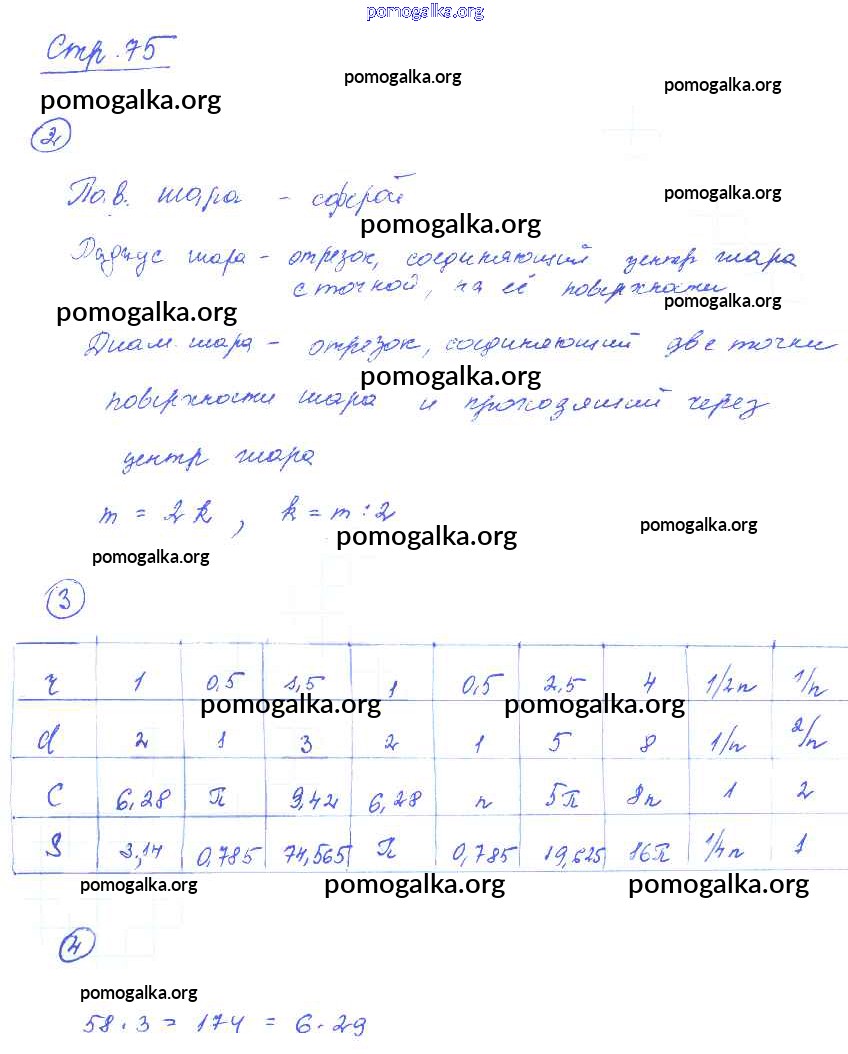 pomogalka.org
Стр. 75
pomogalka.org
pomogalka.org
pomogalka.org
2
Пов. шара - сферой
pomogalka.org
pomogalka.org
Радиус шара - отрезок, соединяющий центр шара
с точкой, на её поверхности
pomogalka.org
pomogalka.org
Диам. шара - отрезок, соединяющий две точки
pomogalka.org
поверхности шара и проходящий через
центр шара
m = 2k, k = m : 2
pomogalka.org
pomogalka.org
pomogalka.org
3
r 1 0,5 1,5 1 0,5 2,5 4 1/2π 1/π
pomogalka.org pomogalka.org
d 2 1 3 2 1 5 8 1/π 2/π
C 6,28 π 9,42 6,28 π 5π 8π 1 2
S 3,14 0,785 74,565 π 0,785 19,625 16π 1/4π 1
pomogalka.org pomogalka.org pomogalka.org
4
pomogalka.org
58 · 3 = 174 = 6 · 29